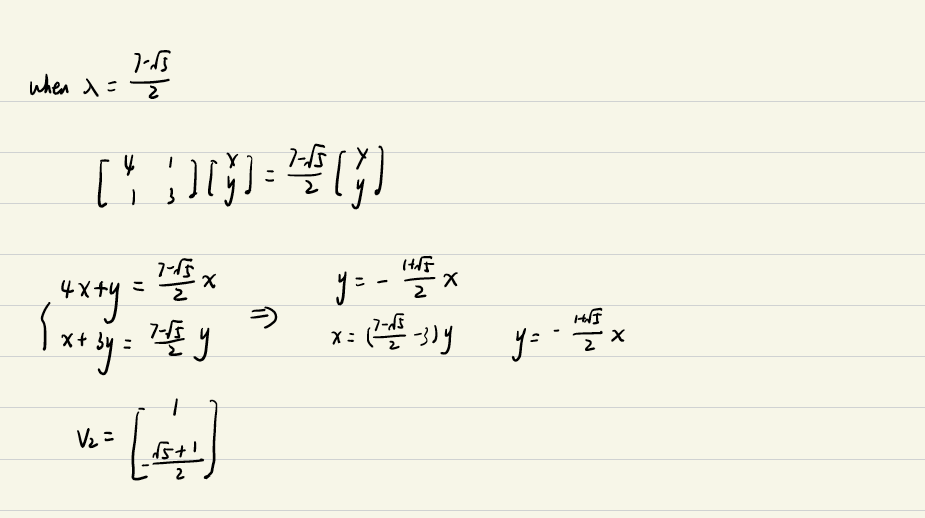 when λ = (7-√5)/2
[4 1; 1 3] [x; y] = (7-√5)/2 [x; y]
{ 4x+y = (7-√5)/2 x ⇒ y = - (1+√5)/2 x
x+3y = (7-√5)/2 y x = ((7-√5)/2 -3) y y = - (1+√5)/2 x
V₂ = [1; -(√5+1)/2]